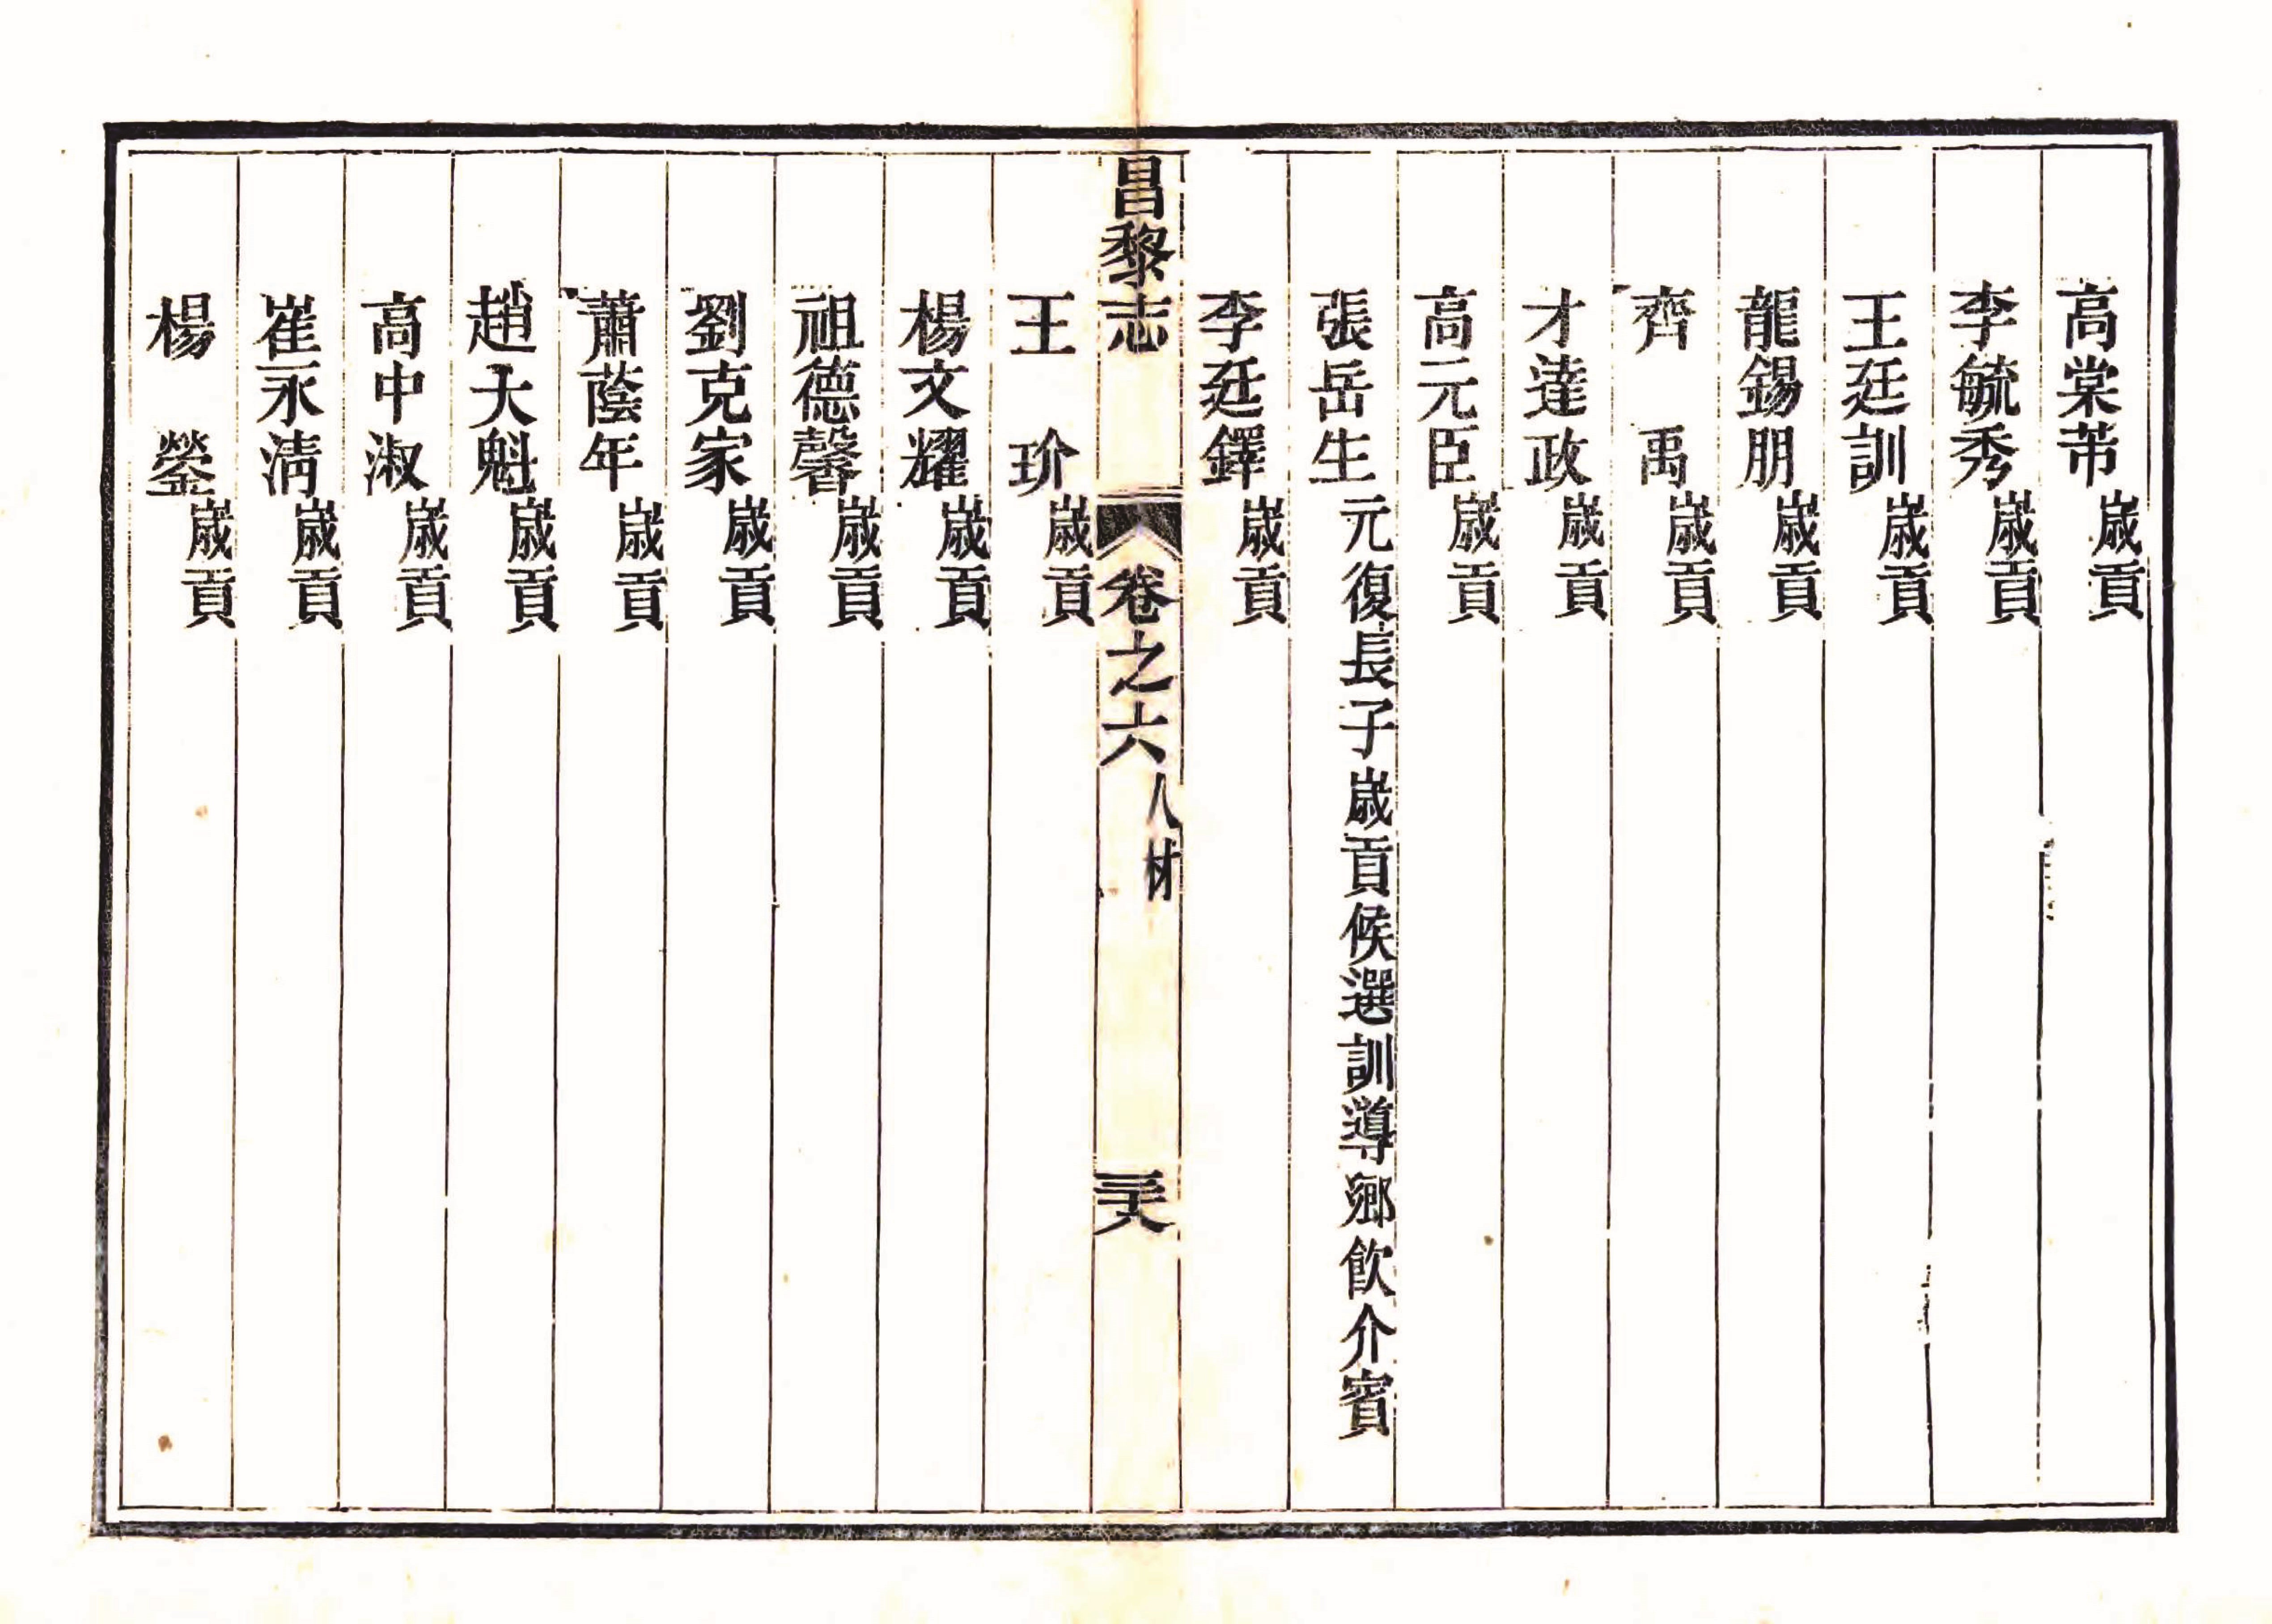 高棠芾歲貢
李毓秀歲貢
王廷訓歲貢
龍錫朋歲貢
齊禹歲貢
才達政歲貢
高元臣歲貢
張岳生元復長子歲貢候選訓導鄉飲介賓
李廷鐸歲貢
昌黎志 卷之六 人材 三十八
王玠歲貢
楊文耀歲貢
祖德馨歲貢
劉克家歲貢
蕭蔭年歲貢
趙大魁歲貢
高中淑歲貢
崔永清歲貢
楊鎣歲貢